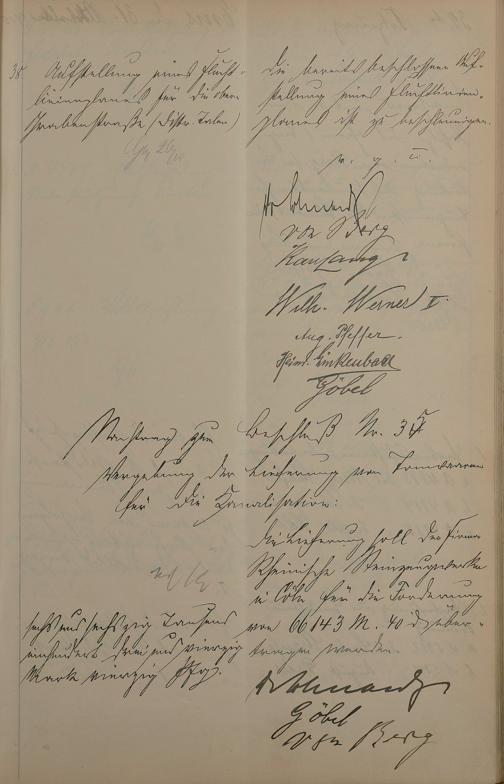 35. Aufstellung eines Flucht-
linienplanes für die obere
Grabenstraße (Distr. Talen)
Die bereits beschlossene Auf-
stellung eines Fluchtlinien-
planes ist zu beschleunigen.
v. g. u.
von Berg
Wilh. Werner II.
Aug. Pfeffer.
Heinr. Linkenbach
Göbel
Nachtrag zum Beschluß Nr. 35
Vergebung der Lieferung von Tonwaaren
für die Kanalisation:
Die Lieferung soll der Firma
Rheinische Steinzeugwerke
in Cöln für die Forderung
von 66143 M. 40 d über-
tragen werden.
sechs und sechszig Tausend
einhundert drei und vierzig
Mark vierzig Pfg.
Göbel
von Berg